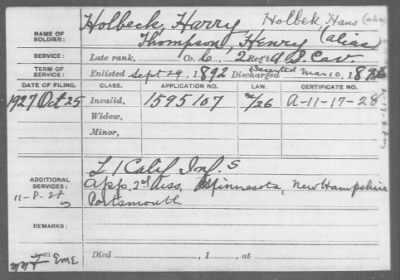 NAME OF SOLDIER: Holbeck, Harry Holbek, Hans (alias
Thompson, Henry (alias
SERVICE: Late rank, Co. L, 2 Reg't U.S. Cav.
TERM OF SERVICE: Enlisted Sept 29, 1892 Discharged Deserted Mar 10, 18
DATE OF FILING. CLASS. APPLICATION NO. LAW. CERTIFICATE NO.
1927 Oct 25 Invalid, 1595107 A-11-17-28
Widow,
Minor,
L 1 Calif Inf. S
ADDITIONAL SERVICES: App. 2d Diss. Minnesota, New Hampshire
11-8-28 Portsmouth
REMARKS:
Died , 1 , at
EME